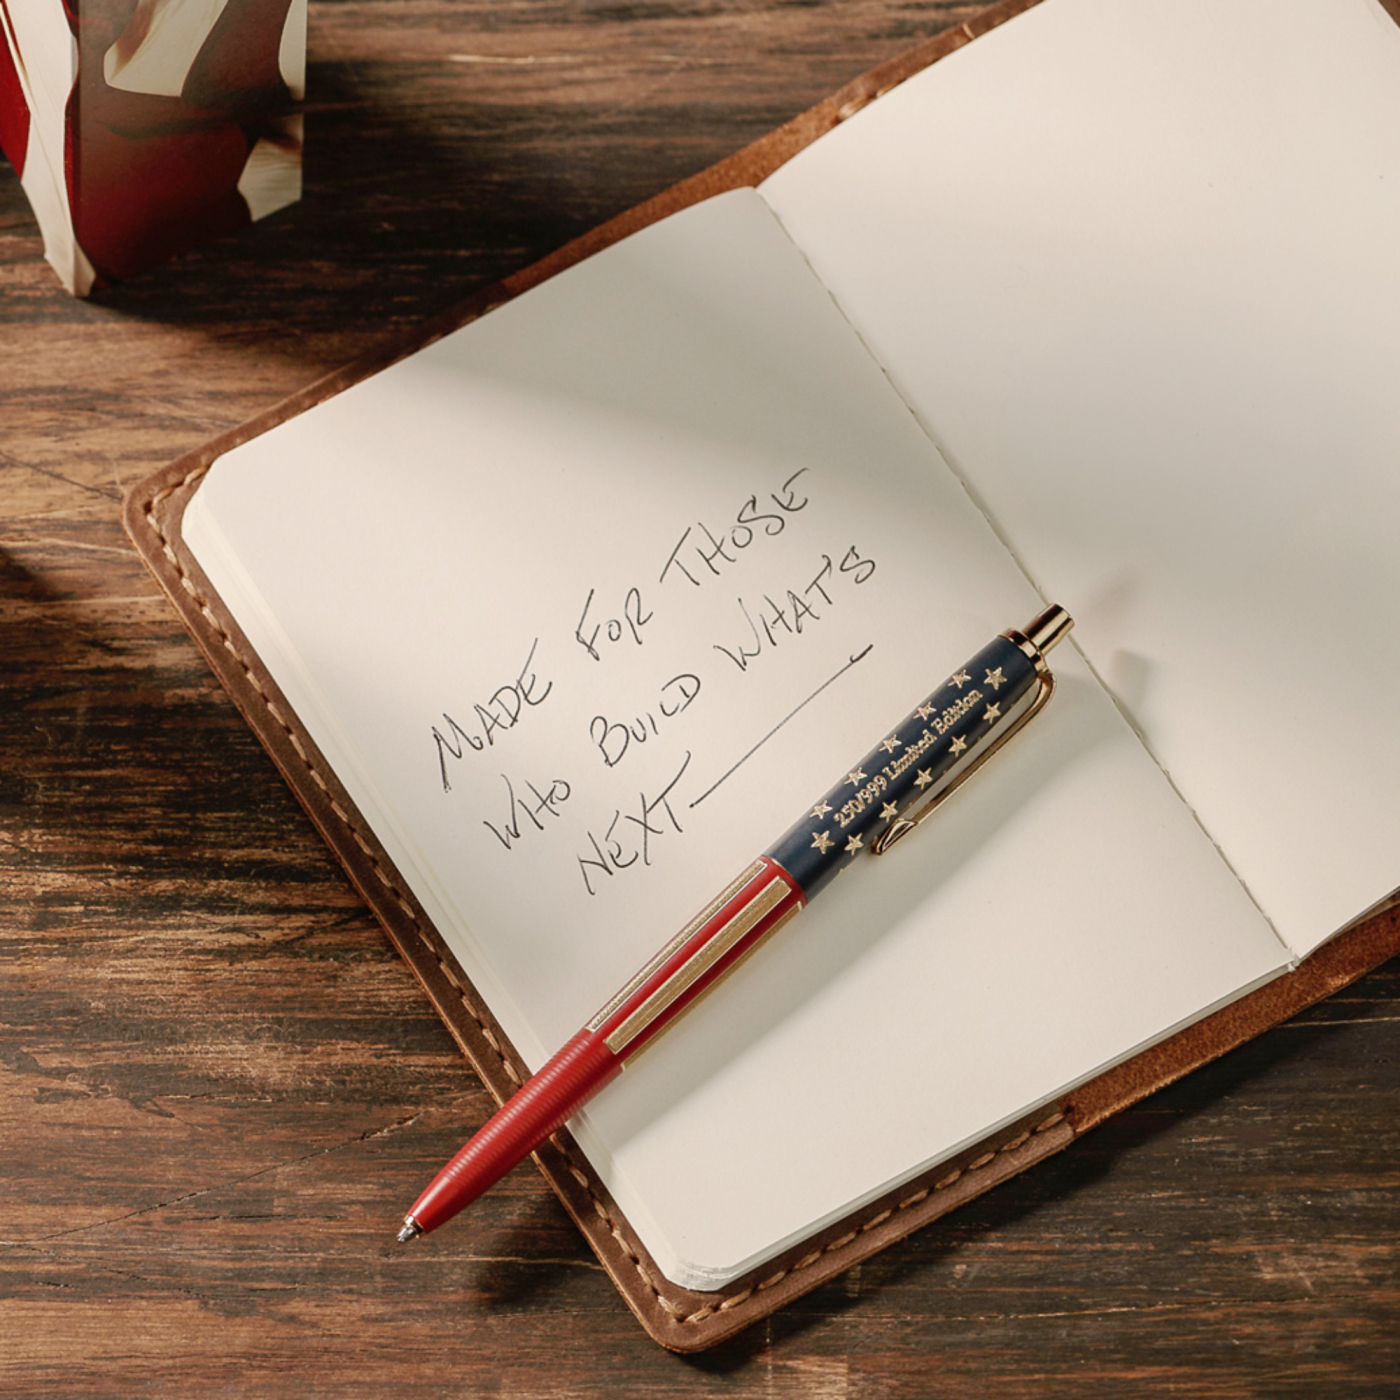 MADE FOR THOSE
WHO BUILD WHAT'S
NEXT
250/999 Limited Edition